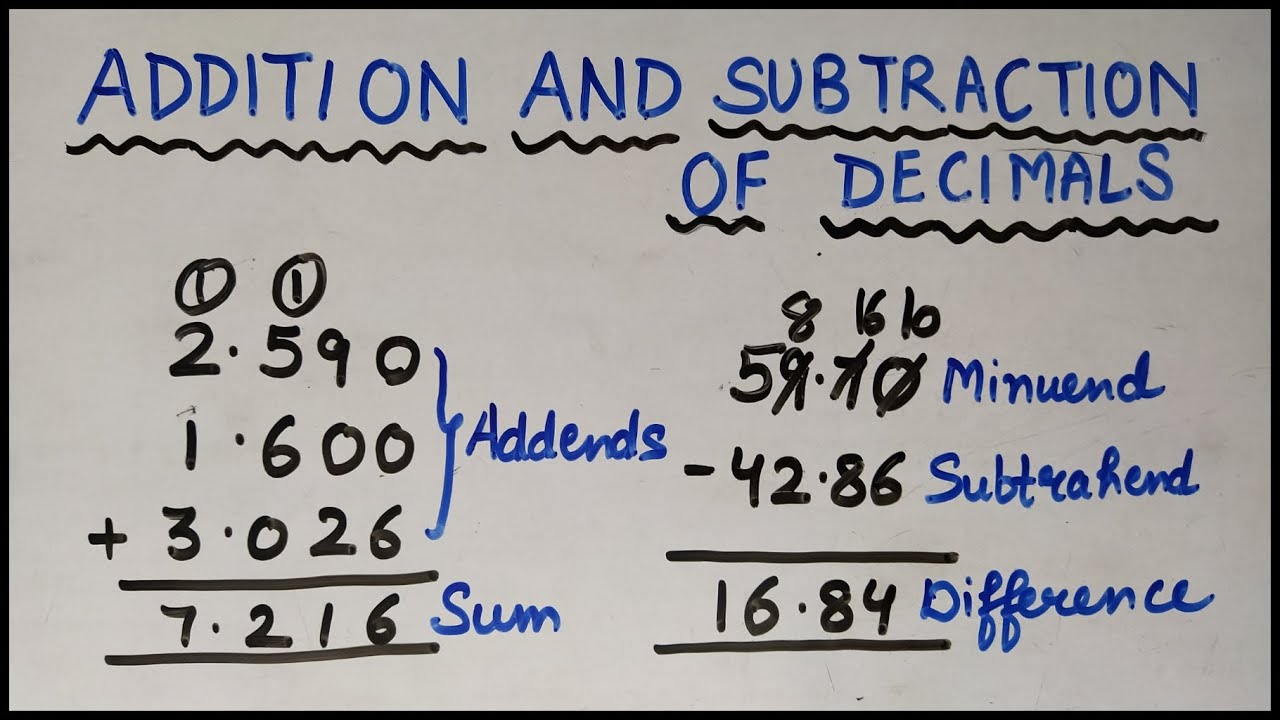 ADDITION AND SUBTRACTION
OF DECIMALS
1 1
2.590
1.600
+ 3.026
Addends
7.216 Sum
8 16 10
59.70 Minuend
- 42.86 Subtrahend
16.84 Difference